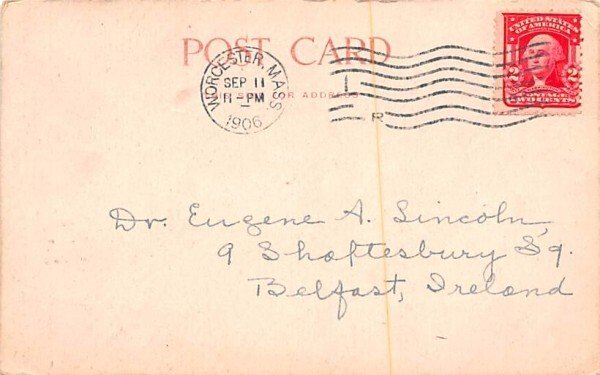 POST CARD
WORCESTER, MASS
SEP 11
11-PM
1906
FOR ADDRESS
I
R
UNITED STATES
OF AMERICA
2 2
POSTAGE
TWO CENTS
Dr. Eugene A. Lincoln,
9 Shaftesbury Sq.
Belfast, Ireland